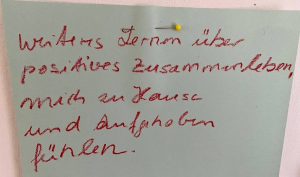 weiteres Lernen über
positives Zusammenleben,
mich zu Hause
und aufgehoben
fühlen.